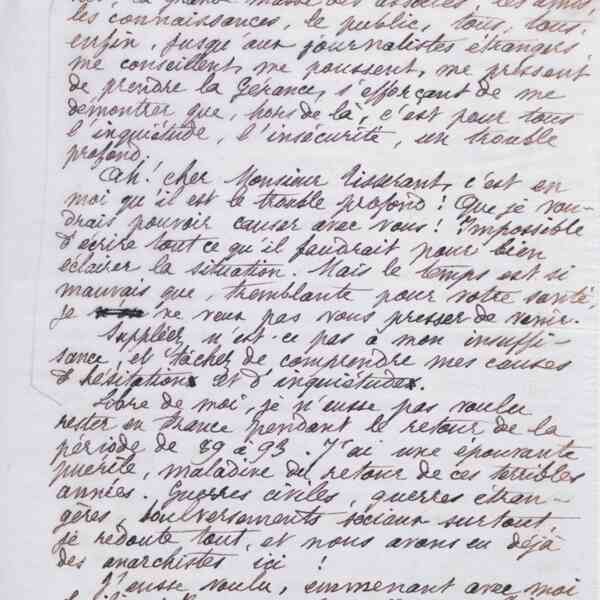 la grande masse des associés, les amis,
les connaissances, le public, tous, tous,
enfin, jusqu'aux journalistes étrangers
me conseillent, me poussent, me pressent
de prendre la Gérance, s'efforçant de me
démontrer que, hors de là, c'est pour tous
l'inquiétude, l'insécurité, un trouble
profond.
Ah! cher Monsieur Tisserant, c'est en
moi qu'il est le trouble profond! Que je vou-
drais pouvoir causer avec vous! Impossible
d'écrire tout ce qu'il faudrait pour bien
éclairer la situation. Mais le temps est si
mauvais que, tremblante pour votre santé,
je ne veux pas vous presser de venir.
Suppléez, n'est-ce pas à mon insuffi-
sance, et tâchez de comprendre mes causes
d'hésitation et d'inquiétude.
Libre de moi, je n'eusse pas voulu
rester en France pendant le retour de la
période de 89 à 93. J'ai une épouvante
puérile, maladive du retour de ces terribles
années. Guerres civiles, guerres étran-
gères, bouleversements sociaux surtout
je redoute tout, et nous avons eu déjà
des anarchistes ici !
J'eusse voulu, emmenant avec moi